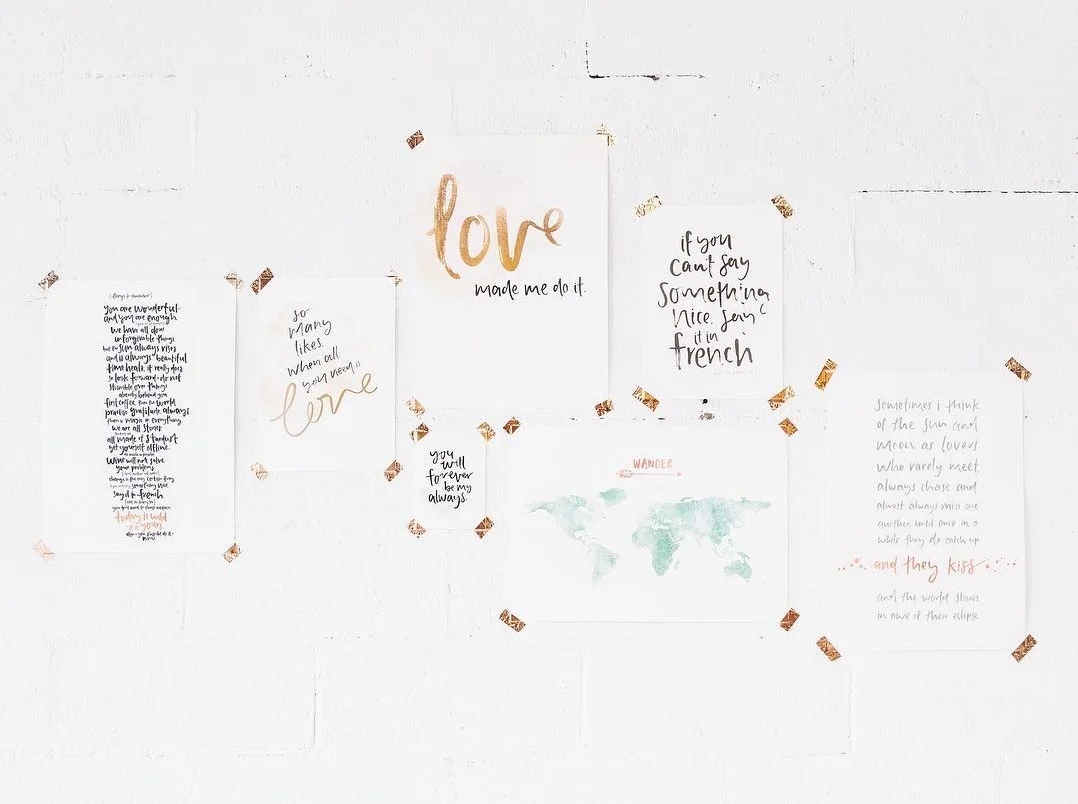 you are wonderful.
and you are enough
we have all done
unforgivable things.
but the sun always rises
and it always beautiful
time heals, it really does
so look forward. do not
stumble over things
already behind you
first coffee. then the world
practise gratitude, always
there is magic in everything
we are all stories
all made of stardust
get yourself offline.
wine will not solve
your problems
something nice
say it in french
today is wild
it is yours
so
many
likes.
when all
you need is
love
love
made me do it.
if you
can't say
something
nice. say
it in
french
you
will
forever
be my
always.
WANDER
sometimes i think
of the sun and
moon as lovers
who rarely meet,
always chase and
almost always miss one
another. until once in a
while they do catch up
and they kiss
and the world stares
in awe of their eclipse